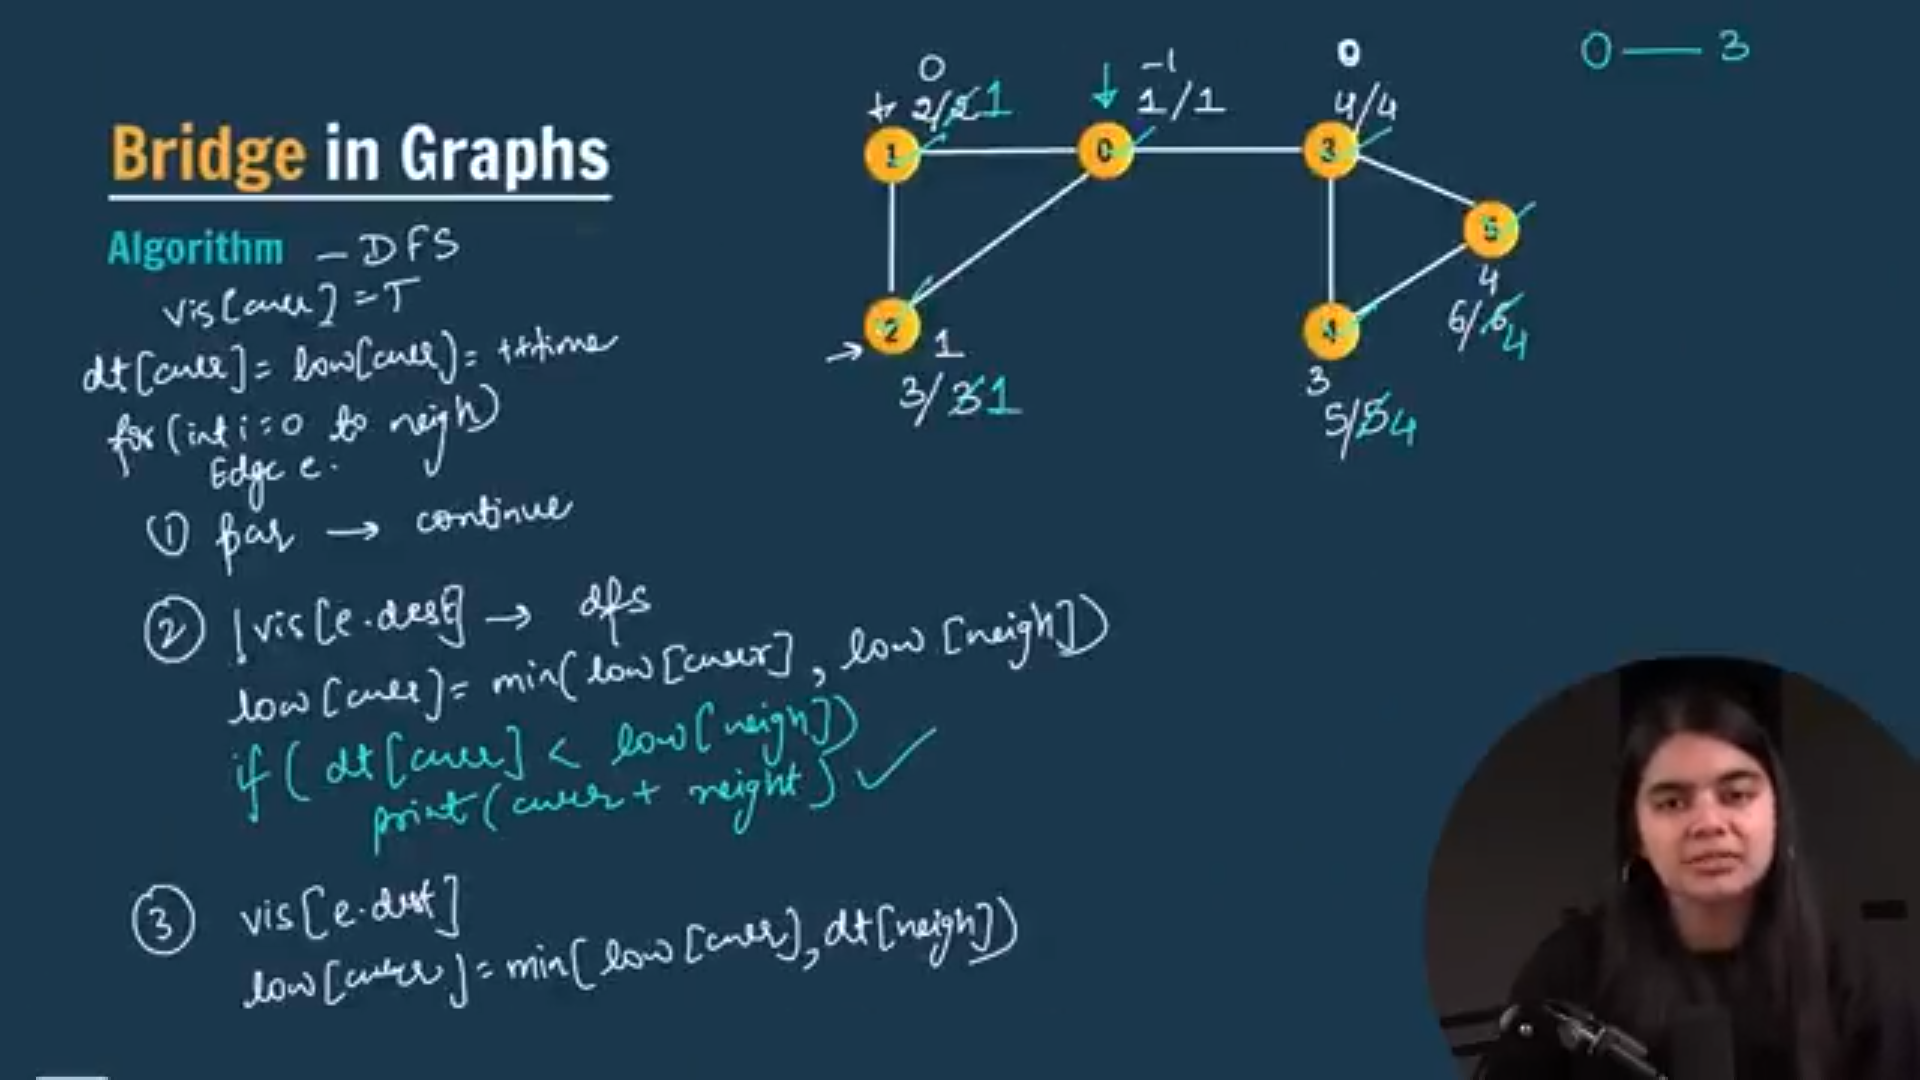 Bridge in Graphs
Algorithm - DFS
vis[curr] = T
dt[curr] = low[curr] = ++time
for(int i=0 to neigh)
Edge e.
① par → continue
② !vis[e.dest] → dfs
low[curr] = min(low[curr], low[neigh])
if(dt[curr] < low[neigh])
print(curr + neigh) ✓
③ vis[e.dest]
low[curr] = min(low[curr], dt[neigh])
0 — 3
0
2/2 1
-1
1/1
0
4/4
1
0
3
5
4
6/6 4
2
1
3/3 1
4
3
5/5 4